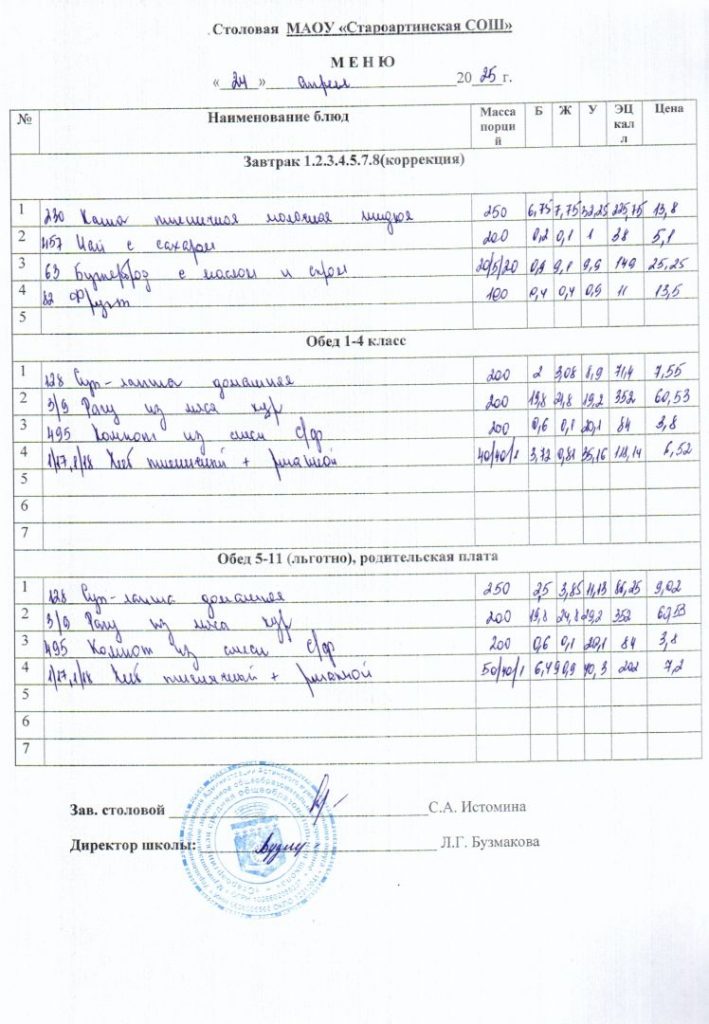 Столовая МАОУ «Староартинская СОШ»
М Е Н Ю
« 24 » апрел 20 25 г.
№ Наименование блюд Масса порций Б Ж У ЭЦ кал л Цена
Завтрак 1.2.3.4.5.7.8(коррекция)
1 230 Каша пшеничная молочная жидкая 250 6,75 7,75 32,25 225,75 13,8
2 457 Чай с сахаром 200 0,2 0,1 1 38 5,1
3 63 Бутерброд с маслом и сыром 20/5/20 9,1 9,9 149 25,25
4 82 Фрукт 100 0,4 0,4 0,9 11 13,5
5
Обед 1-4 класс
1 128 Суп-лапша домашняя 200 2 3,08 8,9 71,4 7,55
2 3/9 Рагу из мяса кур 200 19,8 24,8 19,2 352 60,53
3 495 Компот из смеси с/фр 200 0,6 0,1 20,1 84 3,8
4 1/17,1/18 Хлеб пшеничный + ржаной 40/40/1 3,72 0,81 35,16 6,52
5
6
7
Обед 5-11 (льготно), родительская плата
1 128 Суп-лапша домашняя 250 2,5 3,85 11,13 86,25 9,02
2 3/9 Рагу из мяса кур 200 19,8 24,8 352
3 495 Компот из смеси с/фр 200 0,6 0,1 20,1 84 3,8
4 1/17,1/18 Хлеб пшеничной + ржаной 50/40/1 6,49 0,9 40,3 202 7,2
5
6
7
Зав. столовой С.А. Истомина
Директор школы: Л.Г. Бузмакова